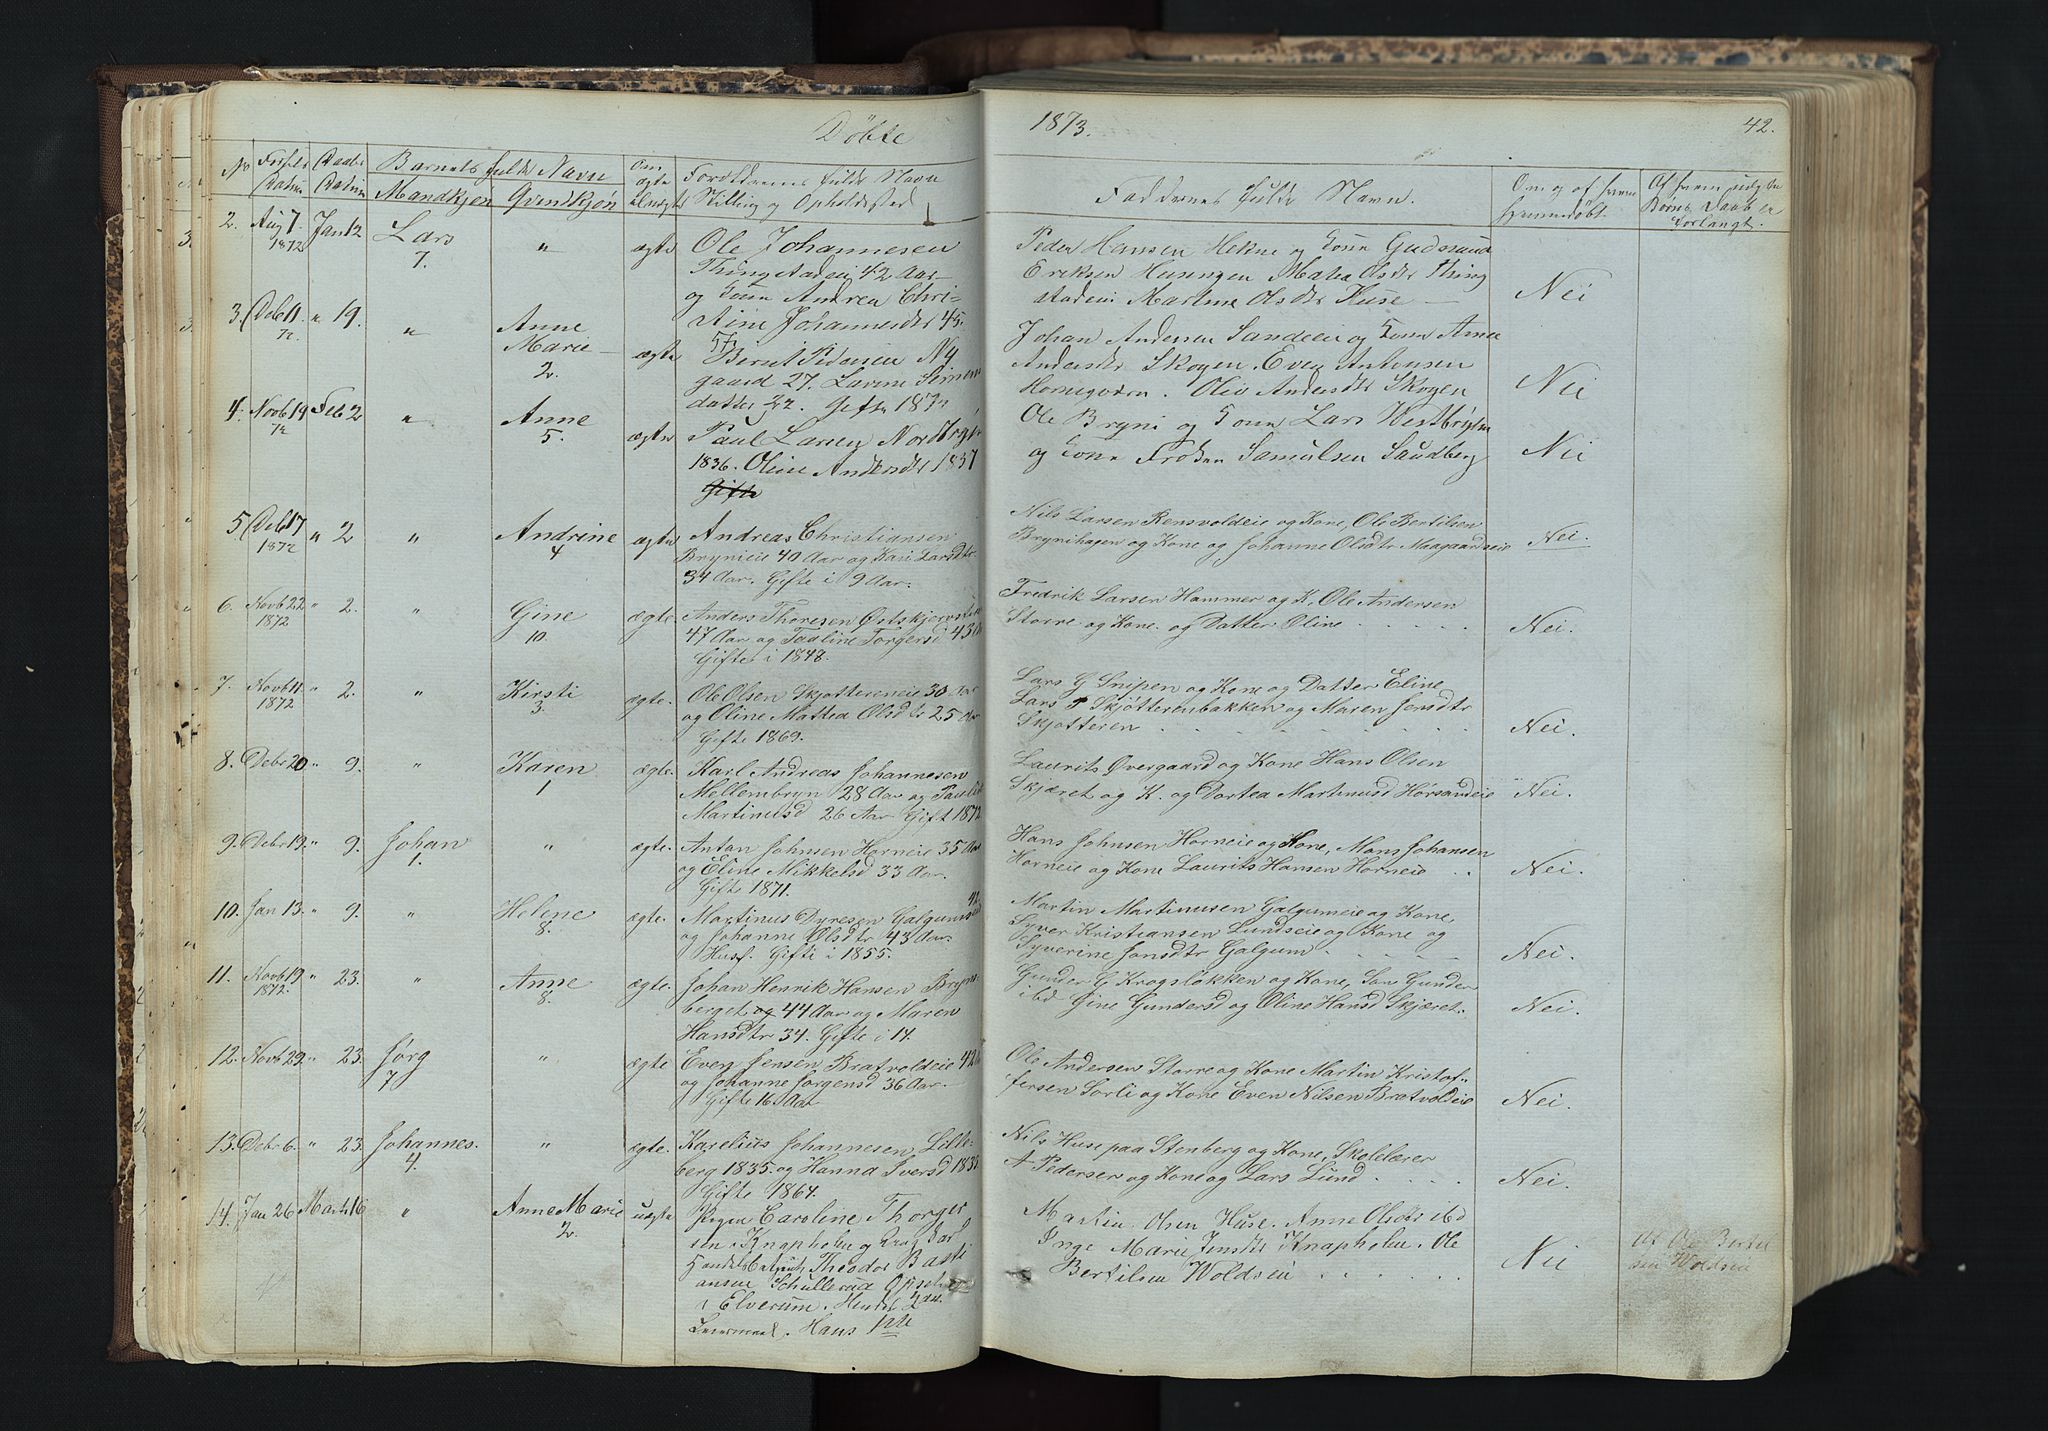 Döbte
1873.
42.
No Fødsels Datum Daabs Datum Barnets fulde Navn Mandkjøn Qvindkjøn Om ægte el uægte Forældrenes fulde Navn Stilling og Opholdssted Faddernes fulde Navn. Om og af hvem hjemmedöbt. Af hvem udg. Börns Daab er forlangt.
2. Aug 7. 1872 Jan 12 Lars 7. " ægte Ole Johannesen
Thingstadeie 42 Aar
og Kone Andrea Chri-
stine Johannesdtr 45.
Peder Hansen Hekne og Kone Gudmund
Eriksen Husengen Mathea Olsdtr Thing
stadeie Martine Olsdtr Huse
Nei
3. Deb 11. 72 " 19. " Anne Marie 2. ægte Bernt Pedersen Ny
gaard 27. Lavine Simens
datter 22. Gifte 1872
Johan Andersen Sandeie og Kone Anne
Andersdtr Skogen. Even Antonsen
Hornegoden. Olia Andersdtr Skogen
Nei
4. Novb 19 72 Feb 2 " Anne 5. ægte Paul Larsen Nordbryn
1836. Oline Andersdtr 1837
Gifte
Ole Bryni og Kone Lars Westbryn
og Kone Froken Samulsen Saudberg
Nei
5 Deb 17 1872 " 2 " Andrine 4 ægte Andreas Christiansen
Brynieie 40 Aar og Kari Larsdtr
34 Aar. Gifte i 9 Aar.
Nils Larsen Rensvoldeie og Kone, Ole Bertilsen
Brynihagen og Kone og Johanne Olsdtr Maagaardseie
Nei.
6. Novb 22 1872 " 2. " Gine 10. ægte. Anders Thoresen Ostskjørvsten
47 Aar og Tadline Torgersd 43 Aar
Gifte i 1848.
Fredrik Larsen Hammer og K, Ole Andersen
Storre og Kone. og Datter Oline
Nei.
7. Novb 11. 1872 " 2. " Kirsti 3. ægte. Ole Olsen Skjøttereneie 30 Aar
og Oline Mattea Olsdtr 25 Aar
Gifte 1869.
Lars G Snipen og Kone og Datter Eline
Lars P Skjøtterenbakken og Maren Jensdtr
Skjøtteren
Nei.
8. Debr 20 " 9. " Karen 1 ægte. Karl Andreas Johannesen
Mellembryn 28 Aar og Pauline
Martinusd 26 Aar Gift 1872
Laurits Øvergaard og Kone Hans Olsen
Skjæret og K. og Dortea Martinusd Horsandeie
Nei.
9. Debr 19. " 9. Johan 1. " ægte. Anton Johnsen Horneie 35 Aar
og Eline Mikkelsd 33 Aar.
Gifte 1871.
Hans Johnsen Horneie og Kone, Mons Johansen
Horneie og Kone Laurits Hansen Horneie
Nei.
10. Jan 13. " 9. " Helene 8. ægte. Martinus Dyresen Galgumseie 42
og Johanne Olsdtr 43 Aar.
Husf. Gifte i 1855.
Martin Martinusen Galgumeie og Kone,
Syver Kristiansen Lundseie og Kone og
Syverine Jonsdtr Galgum
Nei.
11. Novb 19 1872. " 23. " Anne 8. ægte. Johan Henrik Hansen Bryn-
berget og 44 Aar og Maren
Hansdtr 34. Gifte i 14.
Gunder G Krogsløkken og Kone, Søn Gunder
ibd Gine Gundersd og Oline Hansd Skjæret.
Nei.
12. Novb 29. " 23. Jørg 7 " ægte Even Jensen Bratvoldeie 42
og Johanne Jørgensd 36 Aar.
Gifte 16 Aar
Ole Andersen Storre og Kone Martin Kristof-
fersen Sorli og Kone Even Nilsen Brætvoldeie
Nei.
13. Debr 6. " 23. Johannes. 4. " ægte. Karelius Johannesen Lille-
berg 1835. og Hanna Iversd 1835
Gifte 1864.
Nils Huse paa Stenberg og Kone, Skolelærer
A Pedersen og Kone og Lars Lund
Nei.
14. Jan 26 Marts 16 " Anne Marie 2. uægte Pigen Caroline Thorger
sen Knapholm og Ung Kar
Handelsbetjent Theodor Basti
ansen Schullerud Opset
i Elverum. Hendes 2den
Leiermaal. Hans 1ste
Martin Olsen Huse. Anne Olsdtr ibd
Inge Marie Jensdtr Knapholm. Ole
Bertilsen Woldseie
Nei
Af Ole Bertel
sen Woldseie